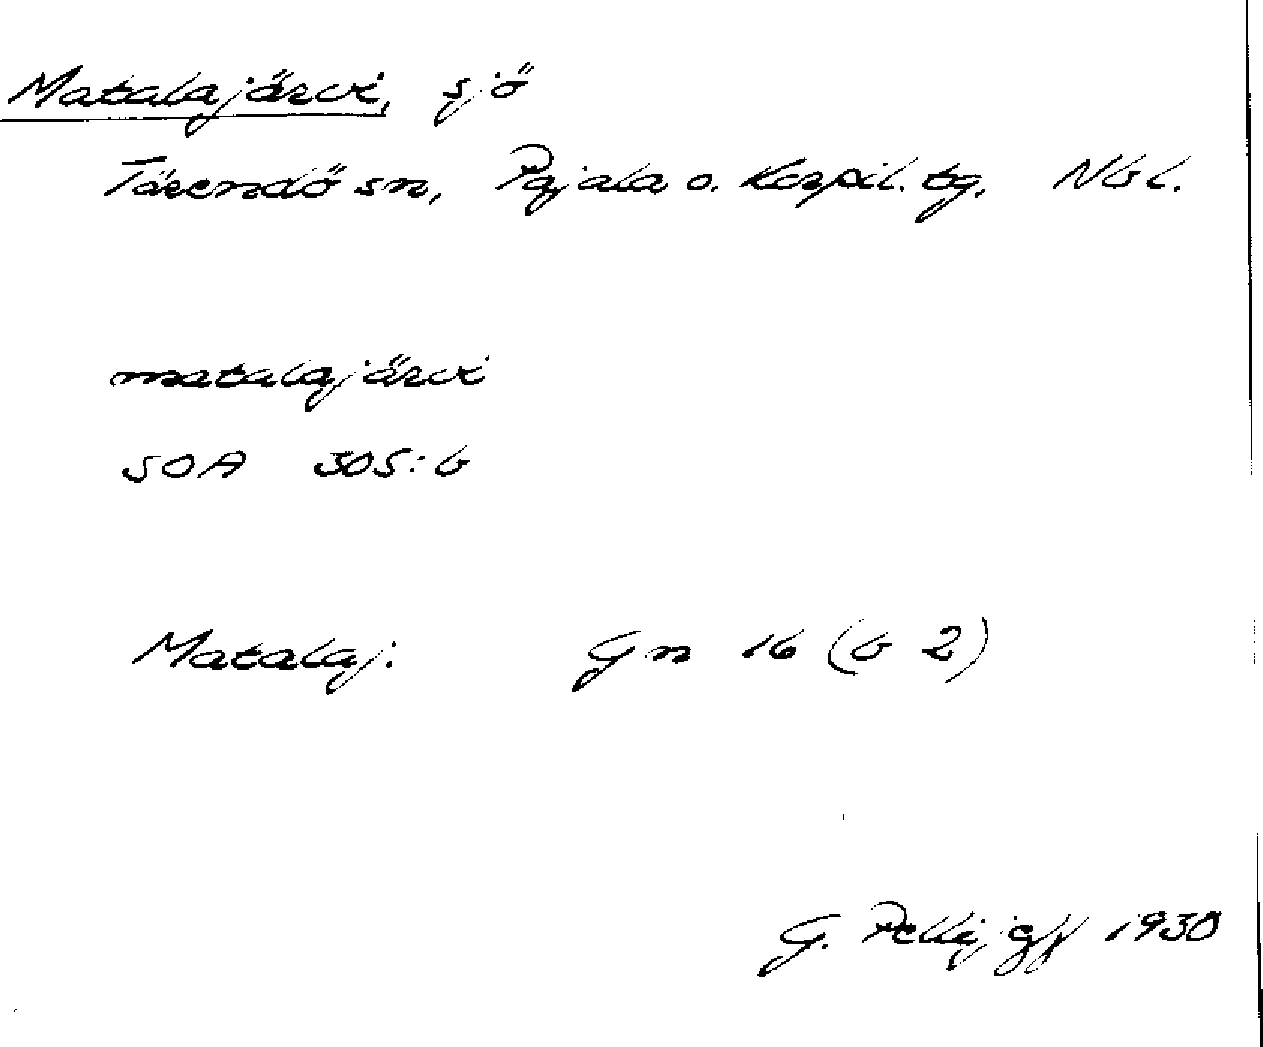 Matalajärvi, sjö
Tärendö sn, Pajala o. Korpil. tg. Nbl.
matalajärvi
SOA 305:6
Matalaj: Gn 16 (b 2)
G. Pellijeff 1930